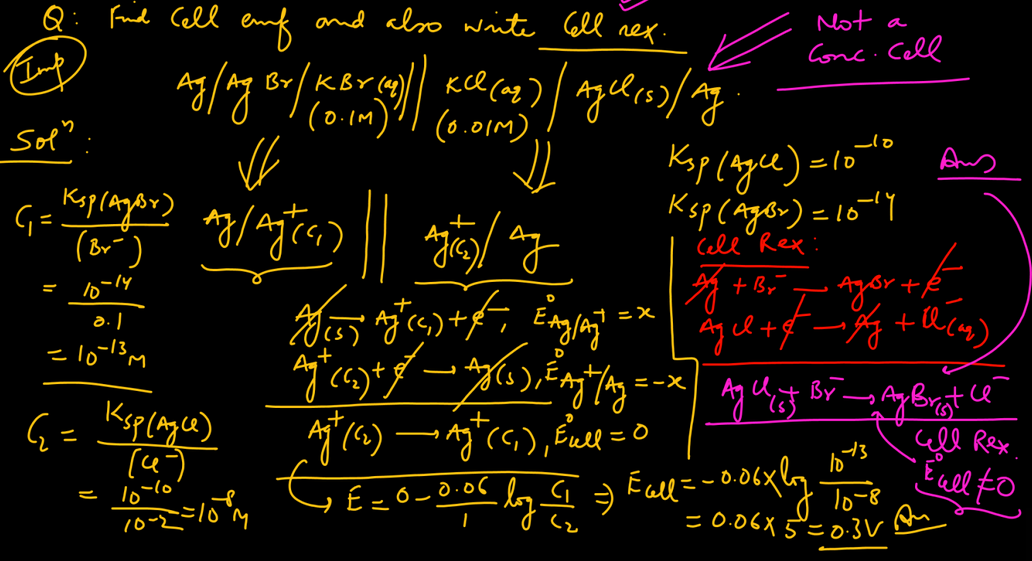 Q: Find Cell emf and also write Cell rex.
Imp
Not a
Conc. Cell
Ag/Ag Br/KBr(aq)//KCl(aq)/AgCl(s)/Ag.
(0.1M) (0.01M)
Solⁿ:
Ksp(AgCl) = 10⁻¹⁰
Ksp(AgBr) = 10⁻¹⁴
Ans
C₁ = Ksp(AgBr)/(Br⁻)
= 10⁻¹⁴/0.1
= 10⁻¹³M
C₂ = Ksp(AgCl)/(Cl⁻)
= 10⁻¹⁰/10⁻² = 10⁻⁸M
Ag/Ag⁺(C₁) || Ag⁺(C₂)/Ag
Ag(s) → Ag⁺(C₁) + e⁻, E⁰Ag/Ag⁺ = x
Ag⁺(C₂) + e⁻ → Ag(s), E⁰Ag⁺/Ag = -x
Ag⁺(C₂) → Ag⁺(C₁), E⁰cell = 0
E = 0 - 0.06/1 log C₁/C₂ ⇒ Ecell = -0.06 x log 10⁻¹³/10⁻⁸
= 0.06 x 5 = 0.3V An
Cell Rex:
Ag + Br⁻ → AgBr + e⁻
AgCl + e⁻ → Ag + Cl⁻(aq)
AgCl(s) + Br⁻ → AgBr(s) + Cl⁻
Cell Rex.
E⁰cell ≠ 0